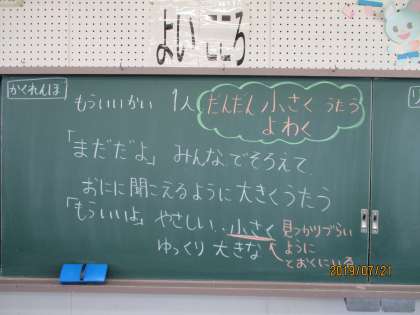 よい こころ
かくれんぼ
もういいかい 1人
だんだん 小さく うたう
よわく
「まだだよ」 みんなでそろえて
おにに聞こえるように 大きくうたう
「もういいよ」 やさしい‥小さく
ゆっくり 大きな
見つかりづらい
ように
とおくにいる
2019/07/21